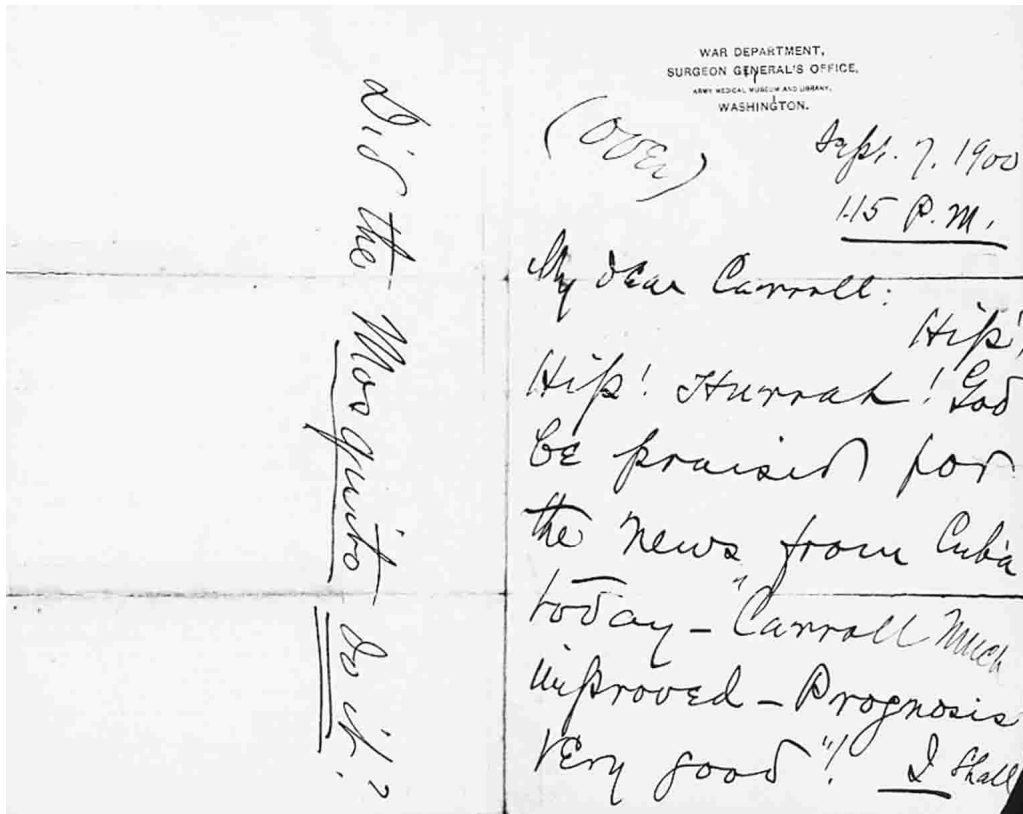 WAR DEPARTMENT,
SURGEON GENERAL'S OFFICE,
ARMY MEDICAL MUSEUM AND LIBRARY,
WASHINGTON.
(over)
Sept. 7, 1900
1:15 P.M.
My dear Carroll:
Hip!
Hip! Hurrah! God
be praised for
the news from Cuba
today – "Carroll much
improved – Prognosis
very good"! I shall
Did the Mosquito do it?